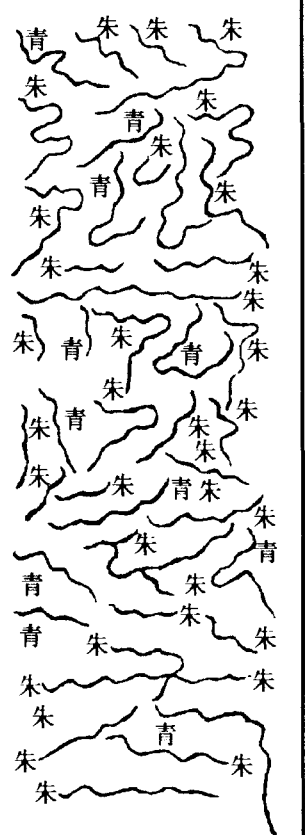 青 朱 朱 朱
朱 朱
青
朱
青 朱
朱
朱 朱
朱
朱 青 朱 青 朱
朱
朱
朱 青 朱
朱
朱 朱 青 朱
朱
朱 青
青 朱
朱
青 朱 朱
朱 朱
朱
青
朱 朱
朱